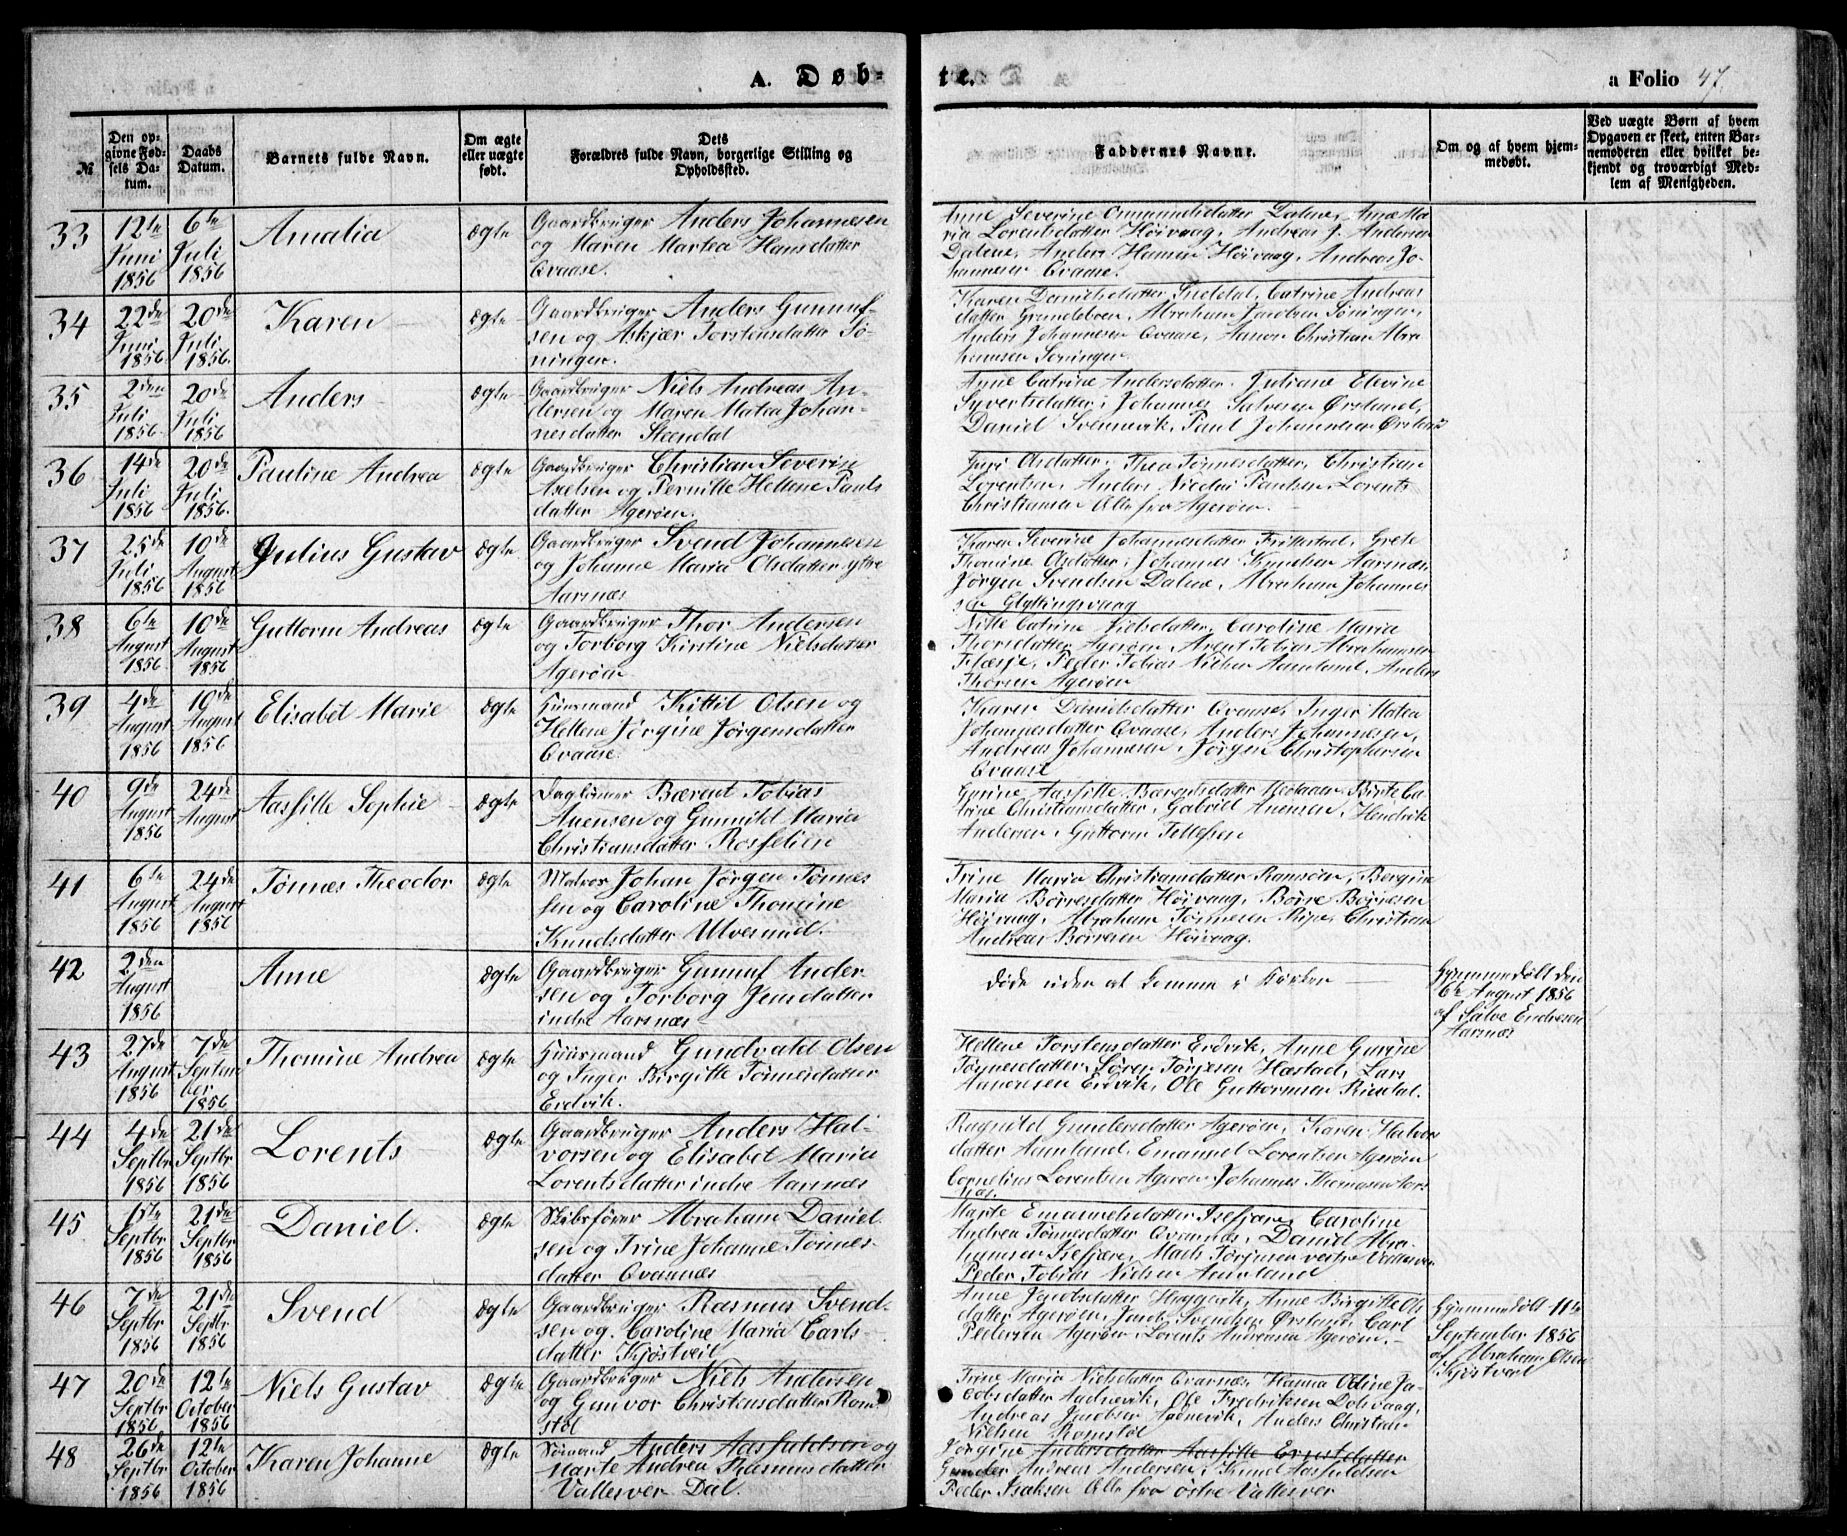 A. Døb-
te.
a Folio 47.
№
Den op-
givne Fød-
sels Da-
tum.
Daabs
Datum.
Barnets fulde Navn.
Om ægte
eller uægte
født.
Dets
Forældres fulde Navn, borgerlige Stilling og
Opholdssted.
Faddernes Navne.
Om og af hvem hjem-
medøbt.
Ved uægte Børn af hvem
Opgaven er skeet, enten Bar-
nemoderen eller hvilket be-
kjendt og troværdigt Med-
lem af Menigheden.
33
12te
Juni
1856
6te
Juli
1856
Amalia
Ægte
Gaardbruger Anders Johannesen
og Maren Martea Hansdatter
Qvaase.
Anne Severine Dalene, Anne Ma-
ria Lorentsdatter Høivaag, Andreas J. Andersen
Dalene, Anders Hansen Høivaag, Andreas Jo-
hannesen Qvaase.
34
22de
Juni
1856
20de
Juli
1856.
Karen
Ægte
Gaardbruger Anders Gunnuf-
sen og Askjær Torstensdatter Tø-
ningen.
Karen Danielsdatter Catrine Andreas
datter Abraham Jacobsen
Anders Johannesen Qvaase, Christian Abra
hamsen
35
2den
Juli
1856.
20de
Juli
1856
Anders
Ægte
Gaardbruger Niels Andreas An-
dersen og Maren Matea Johan-
nesdatter Steendal
Anne Catrine Andersdatter. Juliane Elevine
Syvertsdatter, Johannes Salvesen Ørsland,
Daniel Svennevik, Paul Johannesen
36
14de
Juli
1856
20de
Juli
1856.
Pauline Andrea
Ægte
Gaardbruger Christian Severin
Axelsen og Pernille Hellene Pauls
datter Agerøen.
Guri Olsdatter, Thea Tønnesdatter, Christian
Lorentsen, Anders Nicolai Paulsen, Lorents
Christiansen Alle fra Agerøen.
37
25de
Juli
1856
10de
August
1856
Julius Gustav
Ægte
Gaardbruger Svend Johannesen
og Johanne Maria Olsdatter ytre
Aarsnæs
Karen Severine Johannesdatter Frillestad, Grete
Thomine Olsdatter, Johannes Knudsen Aarsnæs,
Jørgen Svendsen Dalene, Abraham Johannes
sen Glypingsvaag
38
6te
August
1856
10de
August
1856
Guttorm Andreas
Ægte
Gaardbruger Thor Andersen
og Torborg Kirstine Nielsdatter
Agerøen
Catrine Nielsdatter, Caroline Maria
Thorsdatter Agerøen Arent Tobias Abrahamsen
Peder Tobias Nielsen Aamland, Anders
Thorsen Agerøen
39
4de
August
1856
10de
August
1856
Elisabet Marie
Ægte
Huusmand Kittil Olsen og
Hellene Jørgine Jørgensdatter
Qvaase.
Karen Danielsdatter Qvaase, Inger Matea
Johannesdatter Qvaase, Anders Johannesen,
Andreas Johannesen, Jørgen Christophersen
Qvaase
40
9de
August
1856
24de
August
Aasfille Sophie
Ægte
Dagleiner Bærent Tobias
Anensen og Gunnild Maria
Christiansdatter Rosselien
Aasfille Barentsdatter
trine Christiansdatter, Gabriel Anensen, Hendrik
Andersen, Guttorm Tellefsen
41
6te
August
1856
24de
August
1856
Tønnes Theodor
Ægte
Matros Johan Jørgen Tønnes
sen og Caroline Thomine
Knudsdatter Ulvesund.
Trine Maria Christiansdatter Ramsøen, Bergine
Maria Børresdatter Høivaag, Børre Børresen
Høivaag, Abraham Tønnesen Ripe, Christian
Andreas Børresen Høivaag.
42
2den
August
1856
Anne
Ægte
Gaardbruger Gunnuf Ander
sen og Torborg datter
indre Aarsnæs
døde uden at komme i Kirken
Hjemmedøbt den
6te August 1856
af Salve Endresen
Aarsnæs
43
27de
August
1856
7de
Septem
ber
1856
Thomine Andrea
Ægte
Huusmand Gundvald Olsen
og Inger Birgitte Tønnesdatter
Eidvik.
Hellene Torstensdatter Eidvik, Anne Gurine
Tønnesdatter, Søren Tørjesen Hæstad, Lars
Andresen Eidvik, Ole Guttormsen
44
4de
Septbr
1856
21de
Septbr
1856
Lorents
Ægte
Gaardbruger Anders Hal-
vorsen og Elisabet Maria
Lorentsdatter indre Aarsnæs
Ragnild Gundersdatter Agerøen, Karen Halvors
datter Aamland, Emanuel Lorentsen Agerøen
Cornelius Lorentsen Agerøen Johannes Thomasen Aars
næs.
45
6te
Septbr
1856
21de
Septbr
1856
Daniel.
Ægte
Skibsfører Abraham Daniel
sen og Trine Johanne Tønnes-
datter Qvarnæs
Marte Emanuelsdatter Isefjær, Caroline
Andrea Tønnesdatter Qvarnæs, Daniel Abra-
hamsen Isefjære, Mads Tørjesen vestre Vallesver
Peder Tobias Nielsen Aamland
46
7de
Septbr
1856
21de
Septbr
1856
Svend
Ægte
Gaardbruger Rasmus Svend-
sen og Caroline Maria Carls-
datter Kjøstveit
Anne Jacobsdatter Anne Birgitte Ols
datter Agerøen, Jacob Svendsen Ørsland, Carl
Pedersen Agerøen, Lorents Andreasen Agerøen.
Hjemmedøbt 11te
September 1856
af Abraham Olsen
Kjøstveit
47
20de
Septbr
1856
12te
October
1856
Niels Gustav
Ægte
Gaardbruger Niels Andersen
og Gunvor Christensdatter Rom
støl
Trine Maria Nielsdatter Qvarnæs, Hanna Odine Ja-
cobsdatter Ole Fredriksen
Andreas Jacobsen Anders Christian
Nielsen Romstøl
48
26de
Septbr
1856
12te
October
1856
Karen Johanne
Ægte
Sømand Anders Aasfuldsen og
Marte Andrea Rasmusdatter
Vallesver Dal.
Jørgine Andersdatter Aasfille Ernstdatter
Gunder Andreas Andersen, Knud Aasfuldsen
Peder Isaksen Alle fra østre Vallesver